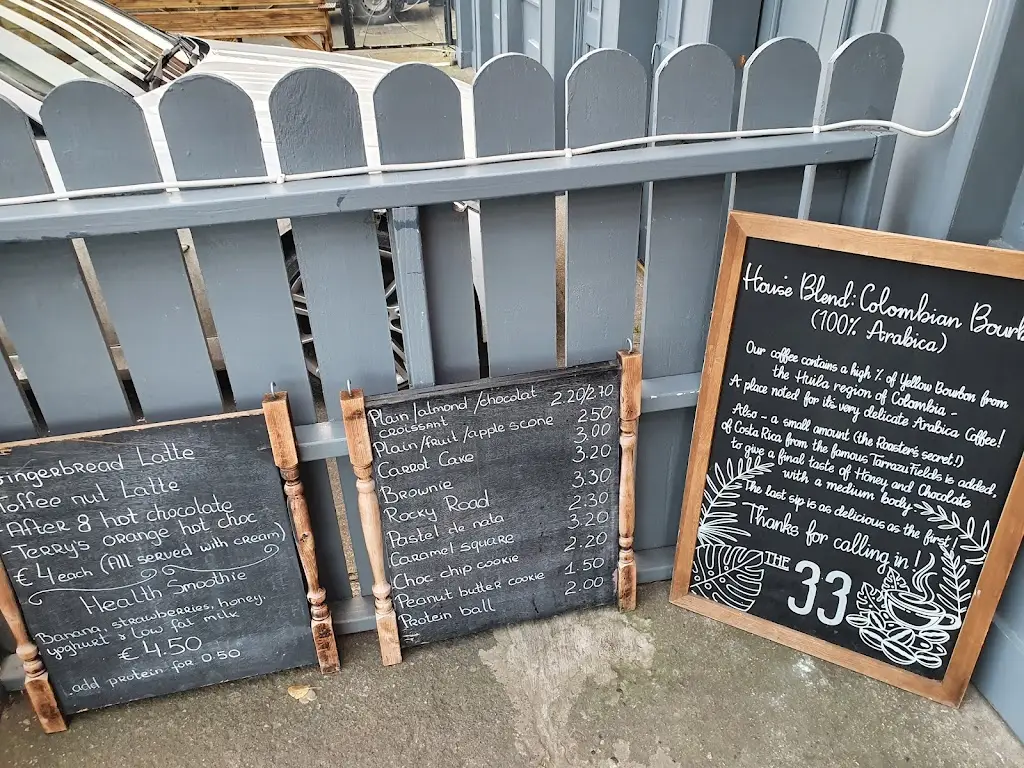 Gingerbread Latte
Toffee nut Latte
-After 8 hot chocolate
-Terry's orange hot choc
€4 each (All served with cream)
Health Smoothie
Banana, strawberries, honey,
yoghurt & low fat milk
€4.50
add protein for 0.50
Plain/almond/chocolat 2.20/2.70
croissant
Plain/fruit/apple scone 2.50
Carrot Cake 3.00
Brownie 3.20
Rocky Road 3.30
Pastel de nata 2.30
Caramel square 3.20
Choc chip cookie 2.20
Peanut butter cookie 1.50
Protein ball 2.00
House Blend: Colombian Bourb
(100% Arabica)
Our coffee contains a high % of Yellow Bourbon from
the Huila region of Colombia -
A place noted for its very delicate Arabica Coffee!
Also - a small amount (the Roasters secret!)
of Costa Rica from the famous Tarrazu Fields is added,
to give a final taste of Honey and Chocolate
with a medium body
The last sip is as delicious as the first!
Thanks for calling in!
THE 33